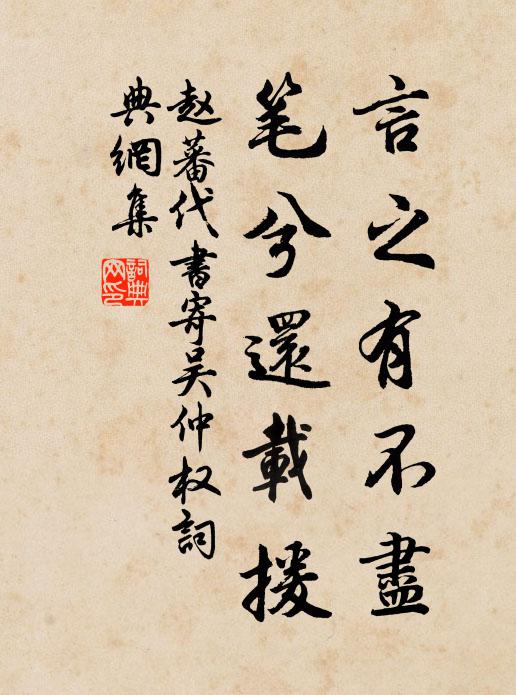 言之有不盡
笔兮還載援
赵蕃代書寄吴仲权詞
典網集
詞典
网印